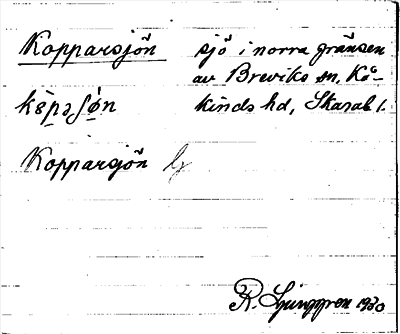 Kopparsjön sjö i norra gränsen
av Breviks sn, Kå-
kinds hd, Skarab. l.
Kopparsjön
R. Ljunggren 1930